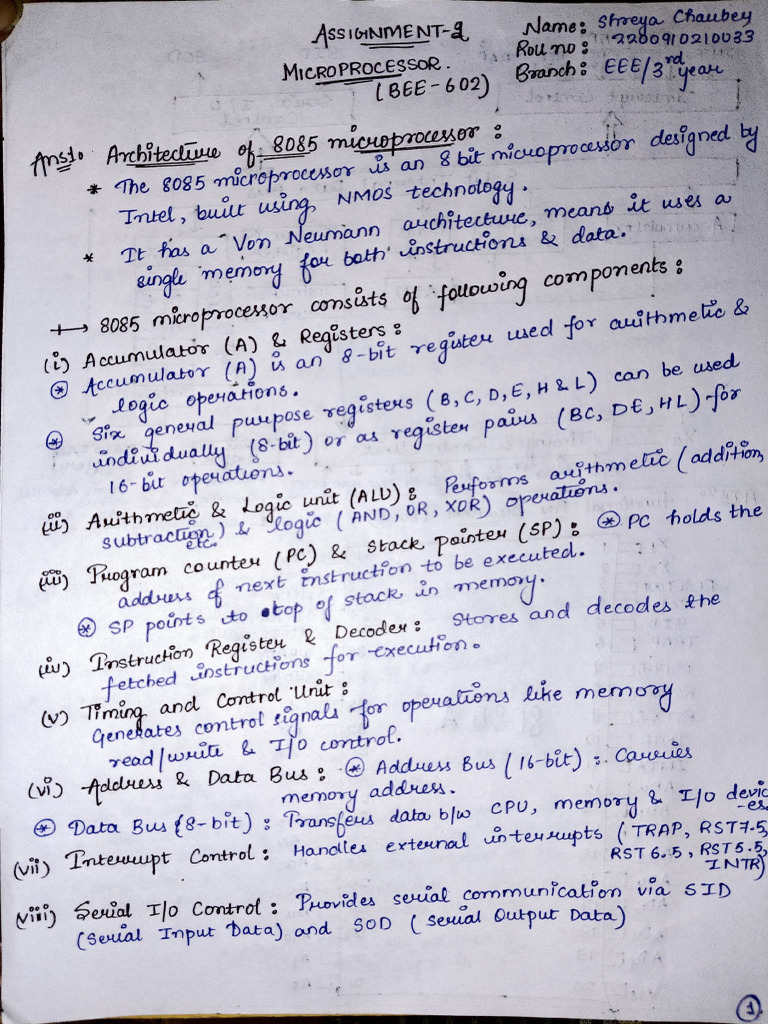 ASSIGNMENT-2
Name: Shreya Chaubey
Roll no: 2200910210033
MICROPROCESSOR.
Branch: EEE/3rd year
(BEE-602)
Ans1. Architecture of 8085 microprocessor :
* The 8085 microprocessor is an 8 bit microprocessor designed by
Intel, built using NMOS technology.
* It has a Von Neumann architecture, means it uses a
single memory for both instructions & data.
→ 8085 microprocessor consists of following components :
(i) Accumulator (A) & Registers :
⊛ Accumulator (A) is an 8-bit register used for arithmetic &
logic operations.
⊛ Six general purpose registers (B, C, D, E, H & L) can be used
individually (8-bit) or as register pairs (BC, DE, HL) for
16-bit operations.
(ii) Arithmetic & Logic unit (ALU) : Performs arithmetic (addition,
subtraction etc.) & logic (AND, OR, XOR) operations.
(iii) Program counter (PC) & Stack pointer (SP) : ⊛ PC holds the
address of next instruction to be executed.
⊛ SP points to top of stack in memory.
(iv) Instruction Register & Decoder : Stores and decodes the
fetched instructions for execution.
(v) Timing and Control Unit :
Generates control signals for operations like memory
read/write & I/O control.
(vi) Address & Data Bus : ⊛ Address Bus (16-bit) : Carries
memory address.
⊛ Data Bus (8-bit) : Transfers data b/w CPU, memory & I/O devic
-es.
(vii) Interrupt Control : Handles external interrupts (TRAP, RST7.5,
RST 6.5, RST 5.5,
INTR)
(viii) Serial I/O Control : Provides serial communication via SID
(Serial Input Data) and SOD (Serial Output Data)
1